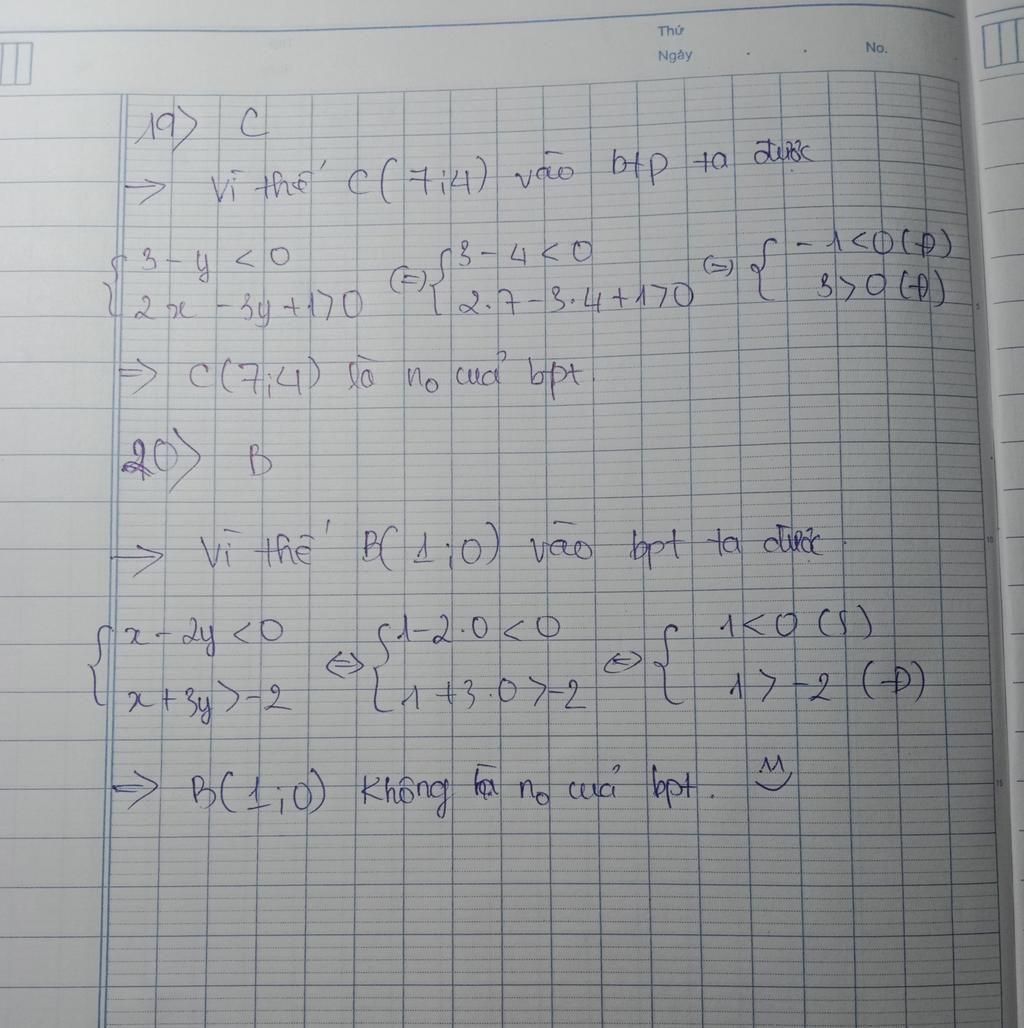 Thứ
Ngày . . No.
19> C
=> Vì thế C(7;4) vào btp ta được
{ 3 - y < 0 (=) { 3 - 4 < 0 (=) { -1 < 0 (Đ)
2x - 3y + 1 > 0 2.7 - 3.4 + 1 > 0 3 > 0 (Đ)
=> C(7;4) là n₀ của bpt.
20> B
=> Vì thế B(1;0) vào bpt ta được
{ x - 2y < 0 <=> { 1 - 2.0 < 0 <=> { 1 < 0 (S)
x + 3y > -2 1 + 3.0 > -2 1 > -2 (Đ)
=> B(1;0) không là n₀ của bpt.